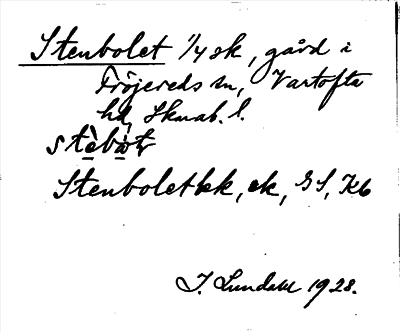 Stenbolet 1/4 sk, gård i
Fröjereds sn, Vartofta
hd, Skarab. l.
Stenbolet kk, ek, GS, Kb
I. Lundahl 1928.